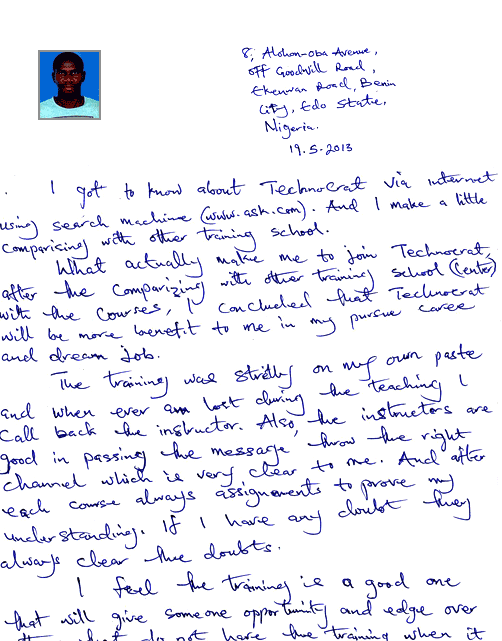 8, Alohan-oba Avenue,
off Goodwill Road,
Ekenwan Road, Benin
City, Edo State,
Nigeria.
19.5.2013
. I got to know about Technocrat via internet
using search machine (www.ask.com). And I make a little
comparising with other training school.
What actually make me to join Technocrat,
after the comparizing with other training school (center)
with the courses, I concluded that Technocrat
will be more benefit to me in my pursue caree
and dream job.
The training was strictly on my own paste
and when ever am lost during the teaching I
call back the instructor. Also, the instructors are
good in passing the message throw the right
channel which is very clear to me. And after
each course always assignments to prove my
understanding. If I have any doubt they
always clear the doubts.
I feel the training is a good one
that will give someone opportunity and edge over
do not have the training when it